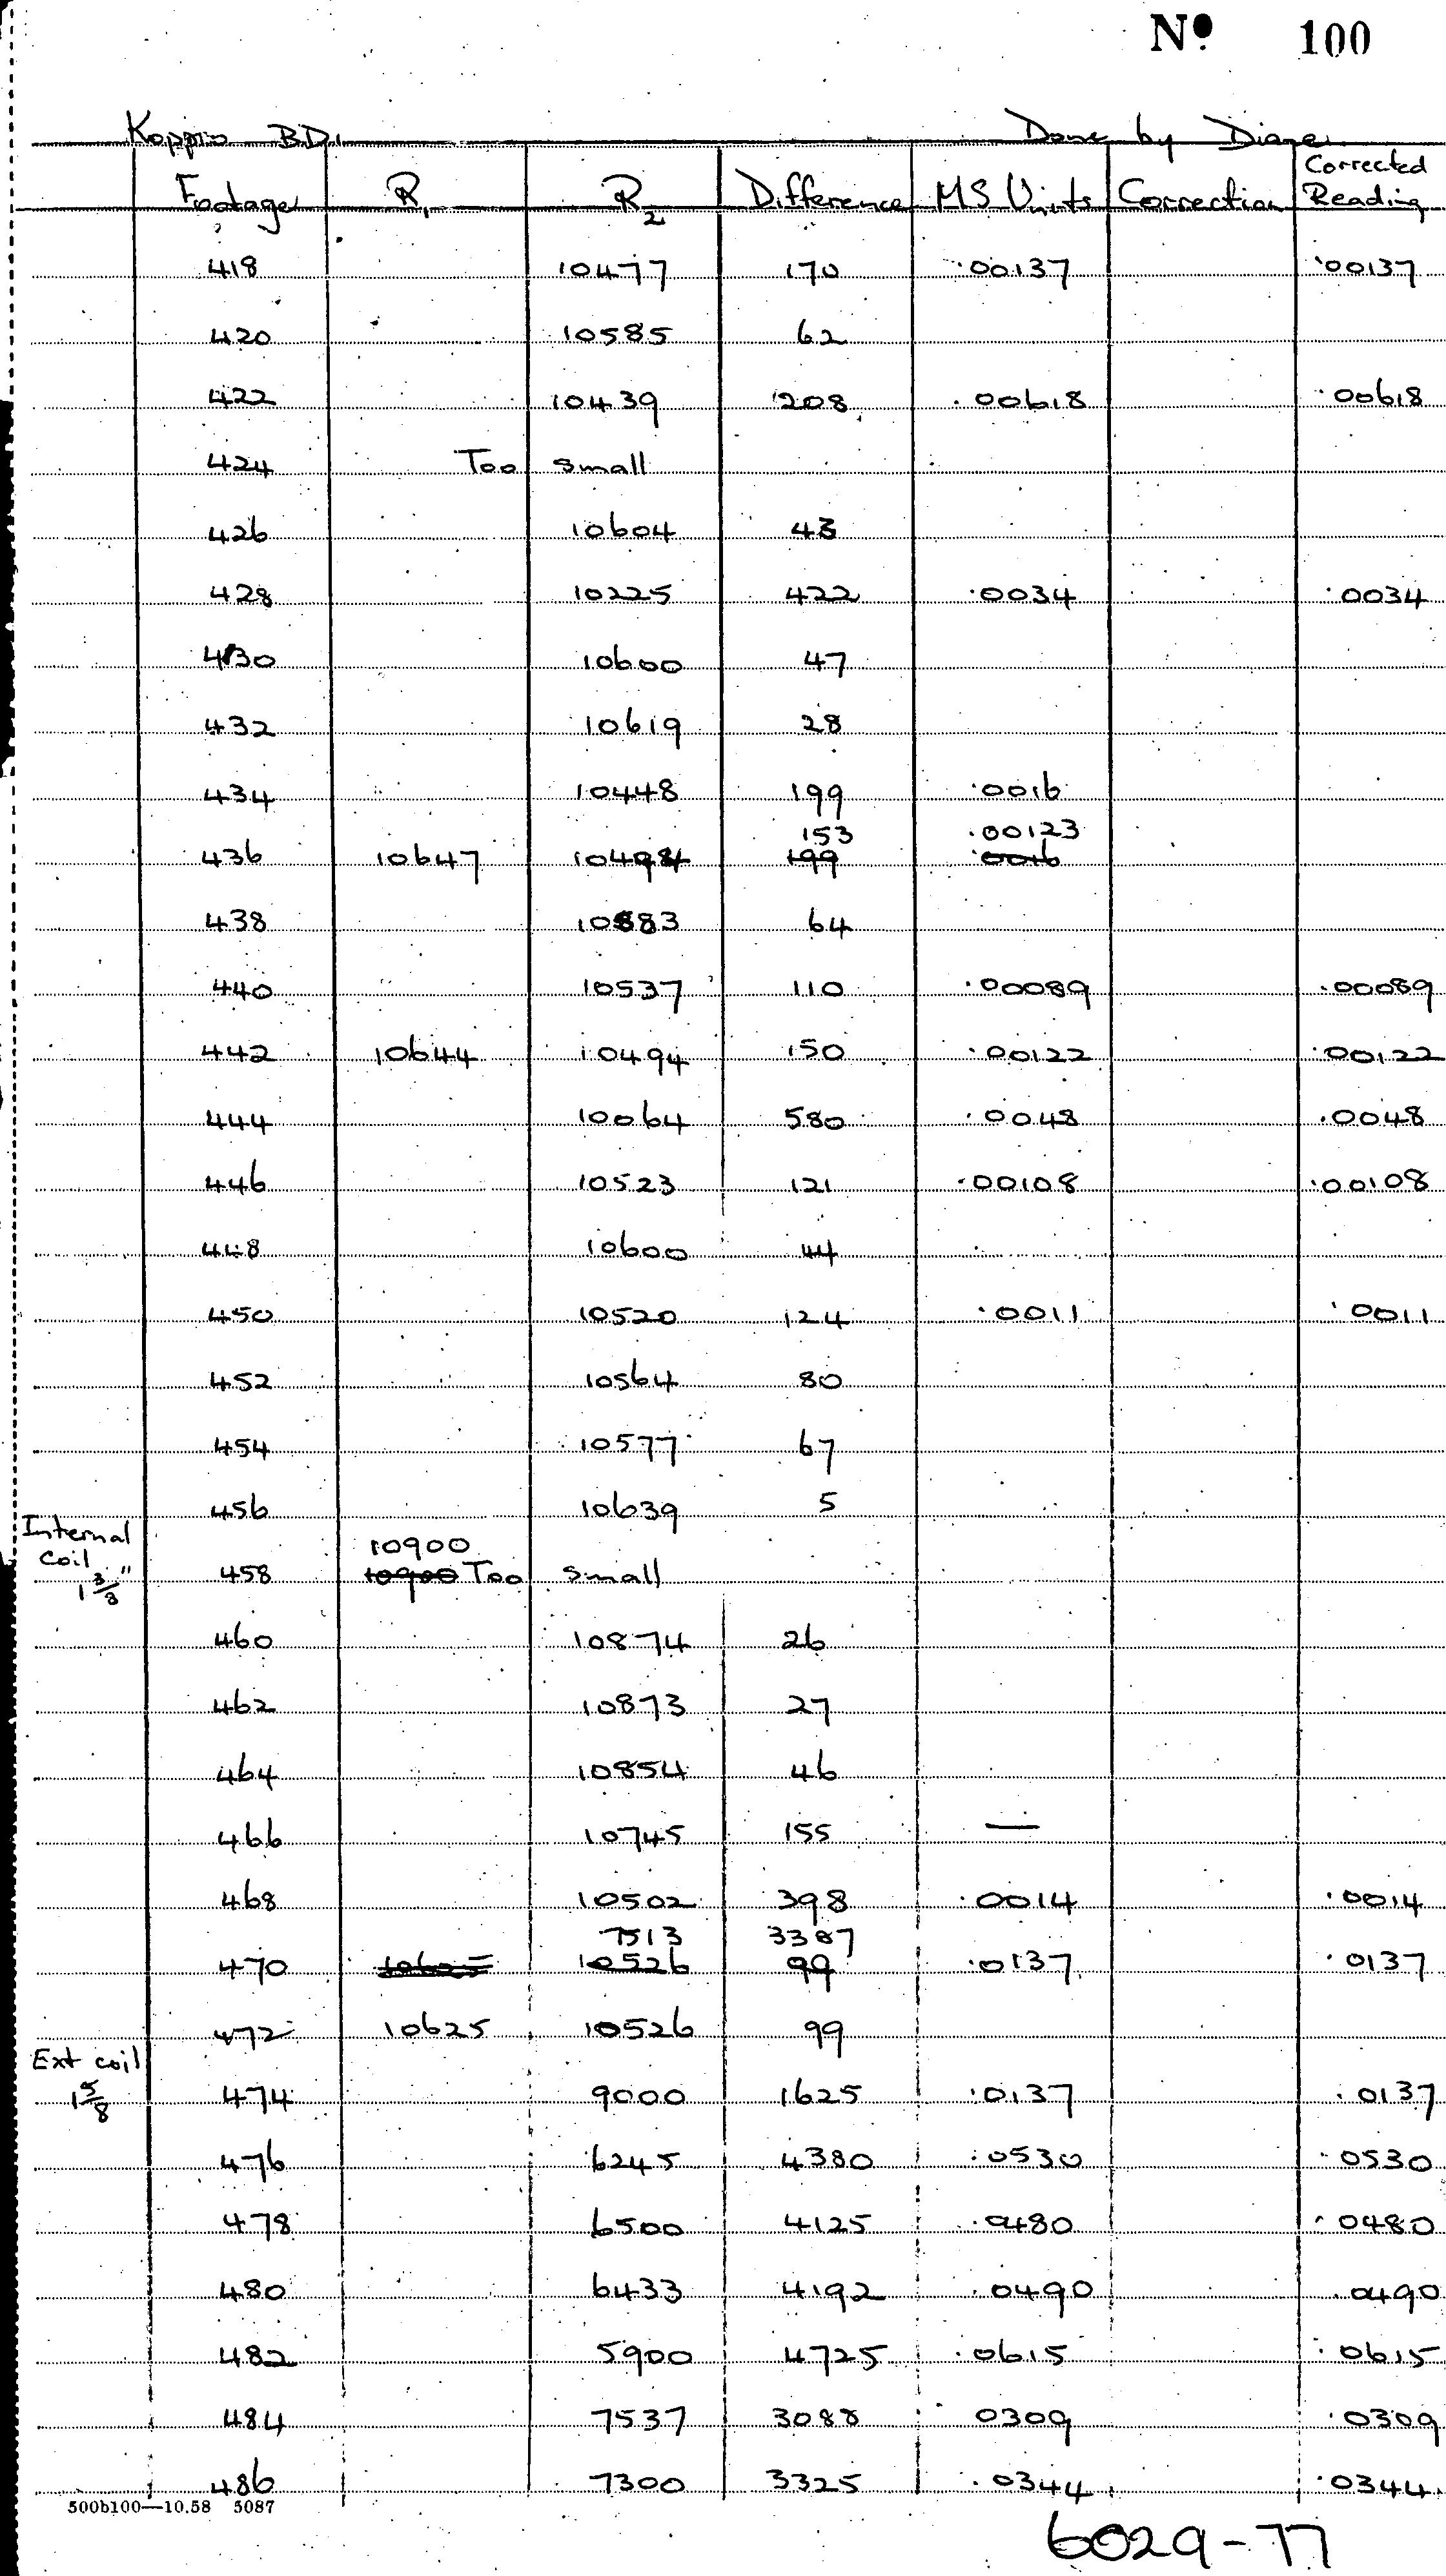 Nº 100
Koppio BD1 Done by Diane
Footage R1 R2 Difference MS Units Correction Corrected Reading
418 10477 170 .00137 .00137
420 10585 62
422 10439 208 .00618 .00618
424 Too small
426 10604 43
428 10225 422 .0034 .0034
430 10600 47
432 10619 28
434 10448 199 .0016
153 .00123
436 10647 10494 199 .0016
438 10583 64
440 10537 110 .00089 .00089
442 10644 10494 150 .00122 .00122
444 10064 580 .0048 .0048
446 10523 121 .00108 .00108
448 10600 44
450 10520 124 .0011 .0011
452 10564 80
454 10577 67
456 10639 5
Internal
coil 10900
1 3/8" 458 10900 Too small
460 10874 26
462 10873 27
464 10854 46
466 10745 155 —
468 10502 398 .0014 .0014
7513 3387
470 10625 10526 99 .0137 .0137
472 10625 10526 99
Ext coil
1 5/8 474 9000 1625 .0137 .0137
476 6245 4380 .0530 .0530
478 6500 4125 .0480 .0480
480 6433 4192 .0490 .0490
482 5900 4725 .0615 .0615
484 7537 3088 0309 .0309
486 7300 3325 .0344 .0344
500b100—10.58 5087
6029-77